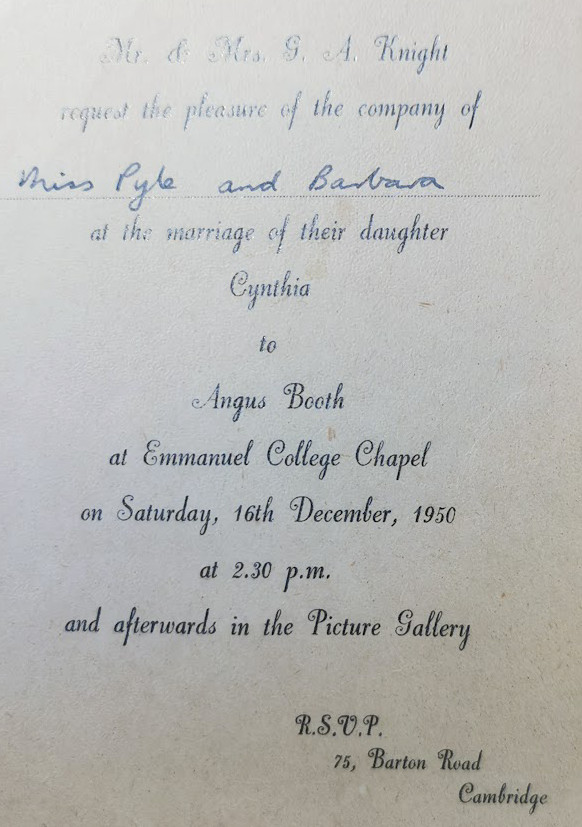 Mr. & Mrs. G. A. Knight
request the pleasure of the company of
Miss Pyle and Barbara
at the marriage of their daughter
Cynthia
to
Angus Booth
at Emmanuel College Chapel
on Saturday, 16th December, 1950
at 2.30 p.m.
and afterwards in the Picture Gallery
R.S.V.P.
75, Barton Road
Cambridge